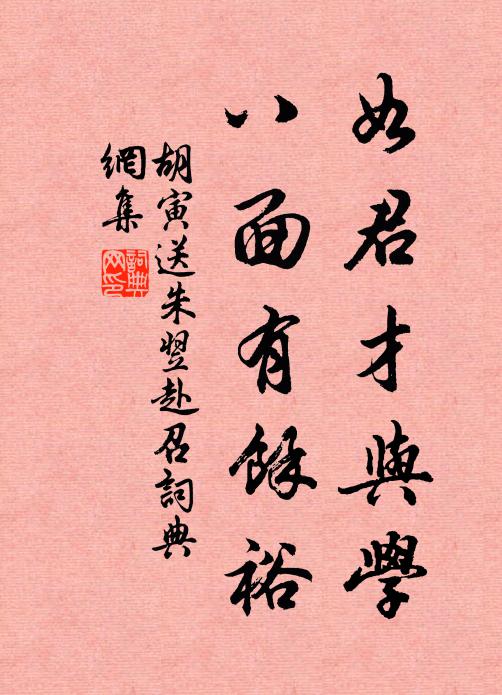 如君才與學
八面有餘裕
胡寅送朱翌赴召詞典
網集
詞典網印